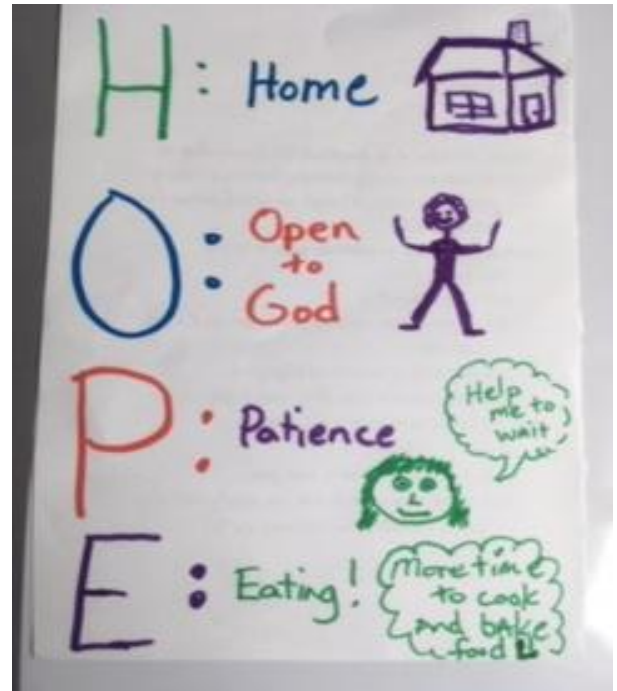 H: Home
O: Open
to
God
P: Patience
Help
me to
wait
E: Eating!
More time
to cook
and bake
food